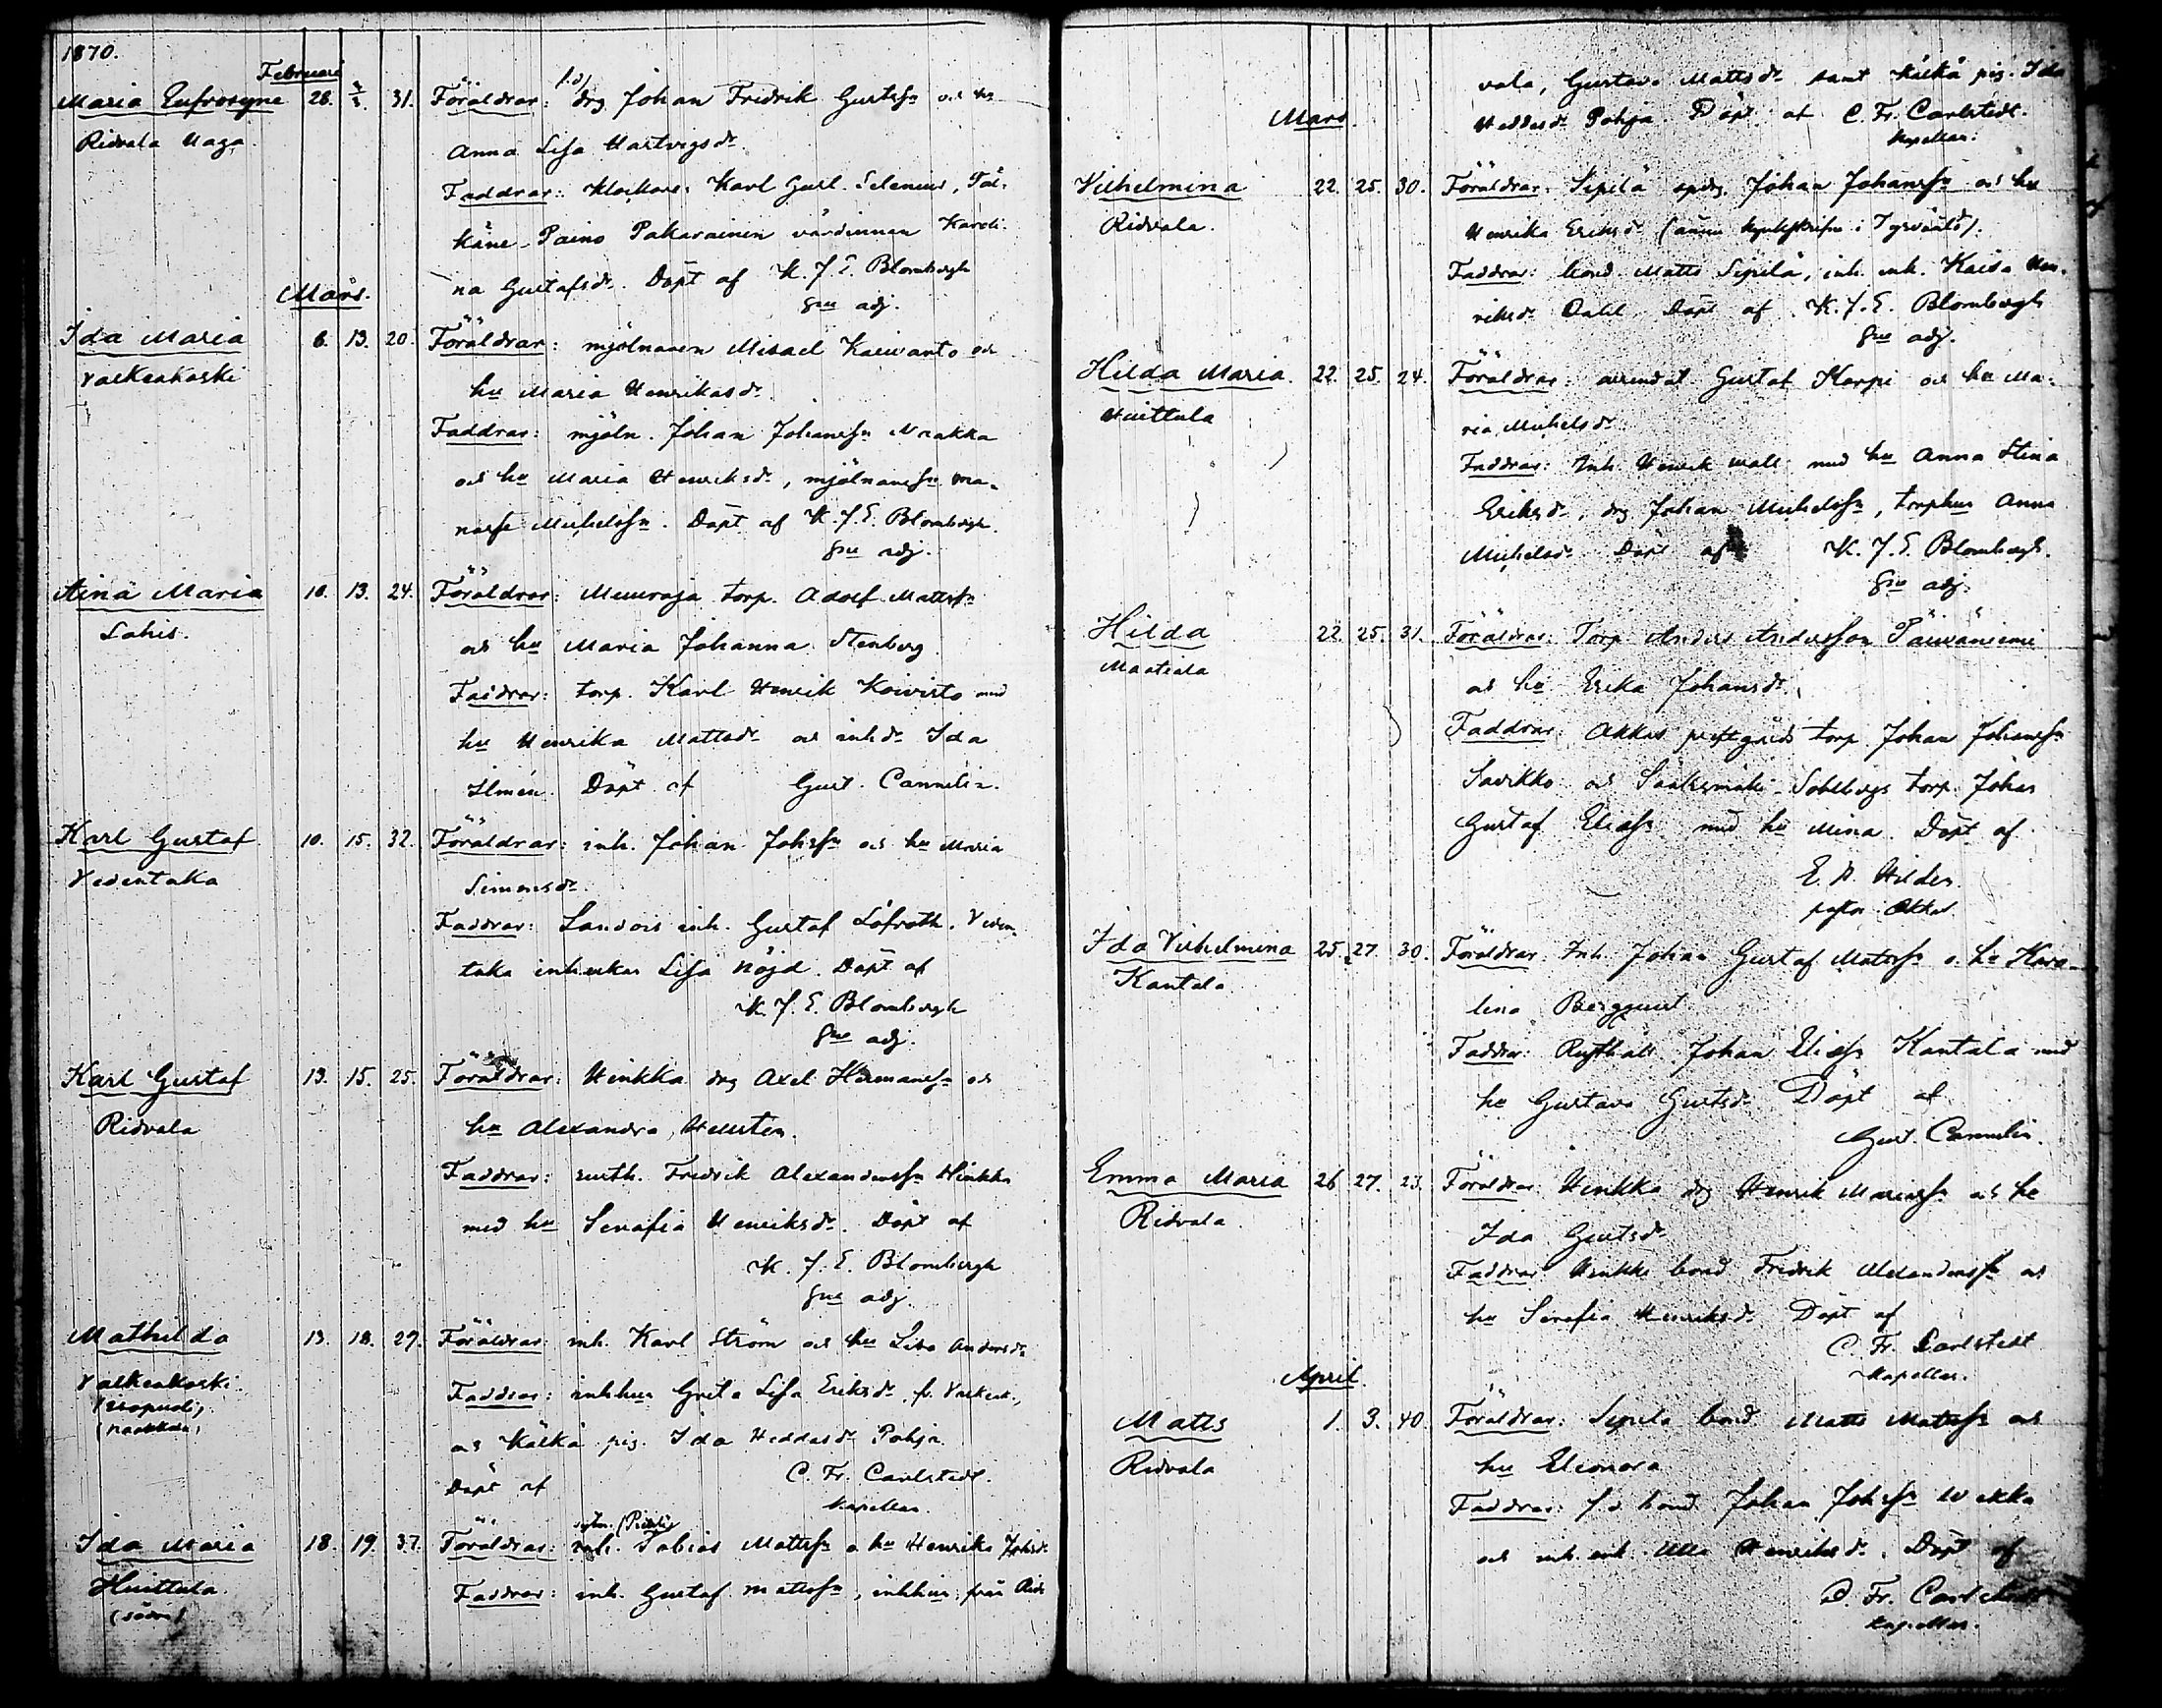 1870.
Februari
Maria Eufrosyne 28. 31. Föräldrar: f.d. drg Johan Fridrik Gustfsn och hu
Ridvala Uaga. Anna Lisa Hartvigsdr
Faddrar: Klockare Karl Gust. Selenius, Päl-
käne Paino Pakarainen värdinnan Karoli-
na Gustafsdr. Döpt af K. J. E. Blombergh
Mars.
adj.
Ida Maria 6. 13. 20. Föräldrar: mjölnaren Misael Koivanto och
Valkeakoski hu Maria Henriksdr.
Faddrar: mjöln. Johan Johanssn Naakka
och hu Maria Henriksdr, mjölnaressn Ma-
nasse Michelssn. Döpt af K. J. E. Blombergh.
adj.
Aina Maria 10. 13. 24. Föräldrar: torp. Adolf Mattssn
Lahis. och hu Maria Johanna Stenberg
Faddrar: torp. Karl Henrik Koivisto med
hu Henrika Mattsdr och inhdr Ida
Ilmén. Döpt af Gust. Cannelin.
Karl Gustaf 10. 15. 32. Föräldrar: inh. Johan Johssn och hu Maria
Vedentaka Simonsdr.
Faddrar: Landois inh. Gustaf Löfroth, Veden-
taka inhenkan Lisa Nöjd. Döpt af
K. J. E. Blombergh
adj.
Karl Gustaf 13. 15. 25. Föräldrar: Hinkka drg Axel Hermanssn och
Ridvala hu Alexandra Hellsten.
Faddrar: rusth. Fredrik Alexanderssn Hinkka
med hu Serafia Henriksdr. Döpt af
K. J. E. Blombergh
adj.
Mathilda 13. 18. 27. Föräldrar: inh. Karl Ström och hu Lisa Andersdr
Valkeakoski Faddrar: inhhu Greta Lisa Eriksdr fr. Valkeak.,
och Kälkä pig. Ida Heddasdr Pohja.
Döpt af C. Fr. Carlstedt.
Kapellan.
Ida Maria 18. 19. 37. Föräldrar: inh. Tobias Mattssn o hu Henrika Johsdr
Huittula. Faddrar: inh. Gustaf Mattssn, inhhu från Rid-
(södra)
vala, Gustava Mattsdr samt Kälkä pig. Ida
Mars. Heddasdr Pohja. Döpt af C. Fr. Carlstedt.
Kapellan.
Vilhelmina 22. 25. 30. Föräldrar: Sipilä drg Johan Johanssn och hu
Ridvala. Henrika Eriksdr (ännu kyrkskrifne i Tyrväntö).
Faddrar: bond. Matts Sipilä, inh. enk. Kaisa Hen-
riksdr Dahl. Döpt af K. J. E. Blombergh
adj.
Hilda Maria. 22. 25. 24. Föräldrar: arrendat. Gustaf Harpi och hu Ma-
Huittula ria Michelsdr
Faddrar: Inh. Henrik Wall med hu Anna Stina
Eriksdr, drg Johan Michelssn, torphu Anna
Michelsdr. Döpt af K. J. E. Blombergh.
adj.
Hilda 22. 25. 31. Föräldrar: Torp. Anders Andersson Päiväniemi
Maatiala och hu Erika Johansdr.
Faddrar: Akkas prestgårds torp Johan Johanssn
Savikko och Sääksmäki torp. Johan
Gustaf Eliassn med hu Mina. Döpt af
E. A. Hildén.
pastor Akkas
Ida Vilhelmina 25. 27. 30. Föräldrar: Inh. Johan Gustaf Mattssn o. hu Karo-
Kantala lina Bergqvist
Faddrar: Rusthåll. Johan Eliassn Kantala med
hu Gustava Gustsdr Döpt af
Gust. Cannelin.
Emma Maria 26 27. 23. Föräldrar: Hinkka drg Henrik Mariassn och hu
Ridvala. Ida Gustsdr
Faddrar: Hinkka bond Fredrik Alexanderssn och
hu Serafia Henriksdr Döpt af
C. Fr. Carlstedt
Kapellan.
April.
Matts 1. 3. 40. Föräldrar: Sipilä bond Matts Mattssn och
Ridvala hu Eleonora
Faddrar: f.d. bond. Johan Johssn Ukka
och inh. enk. Ulla Henriksdr. Döpt af
C. Fr. Carlstedt
Kapellan.